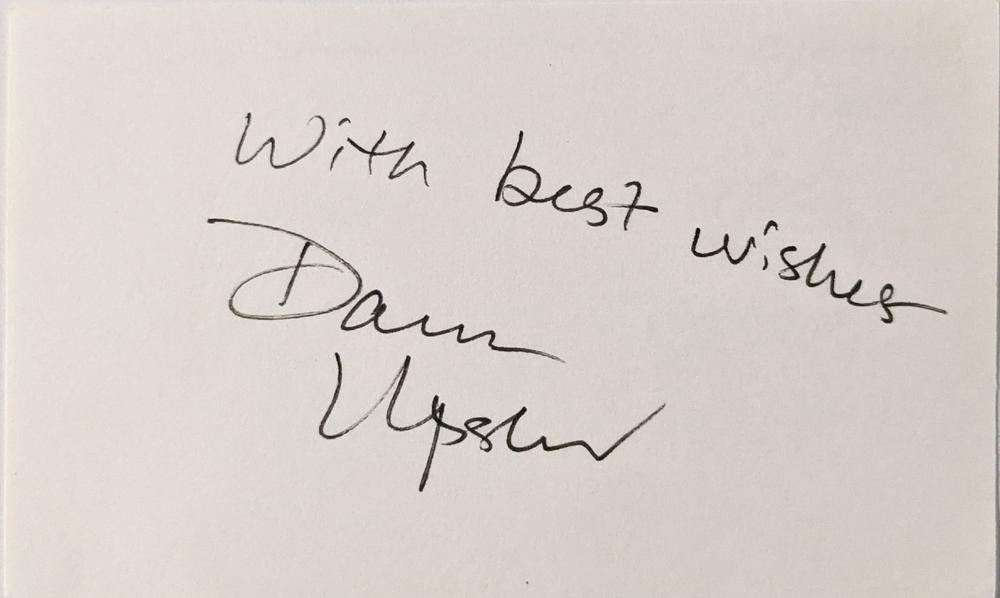 With best wishes
Dawn Upshaw